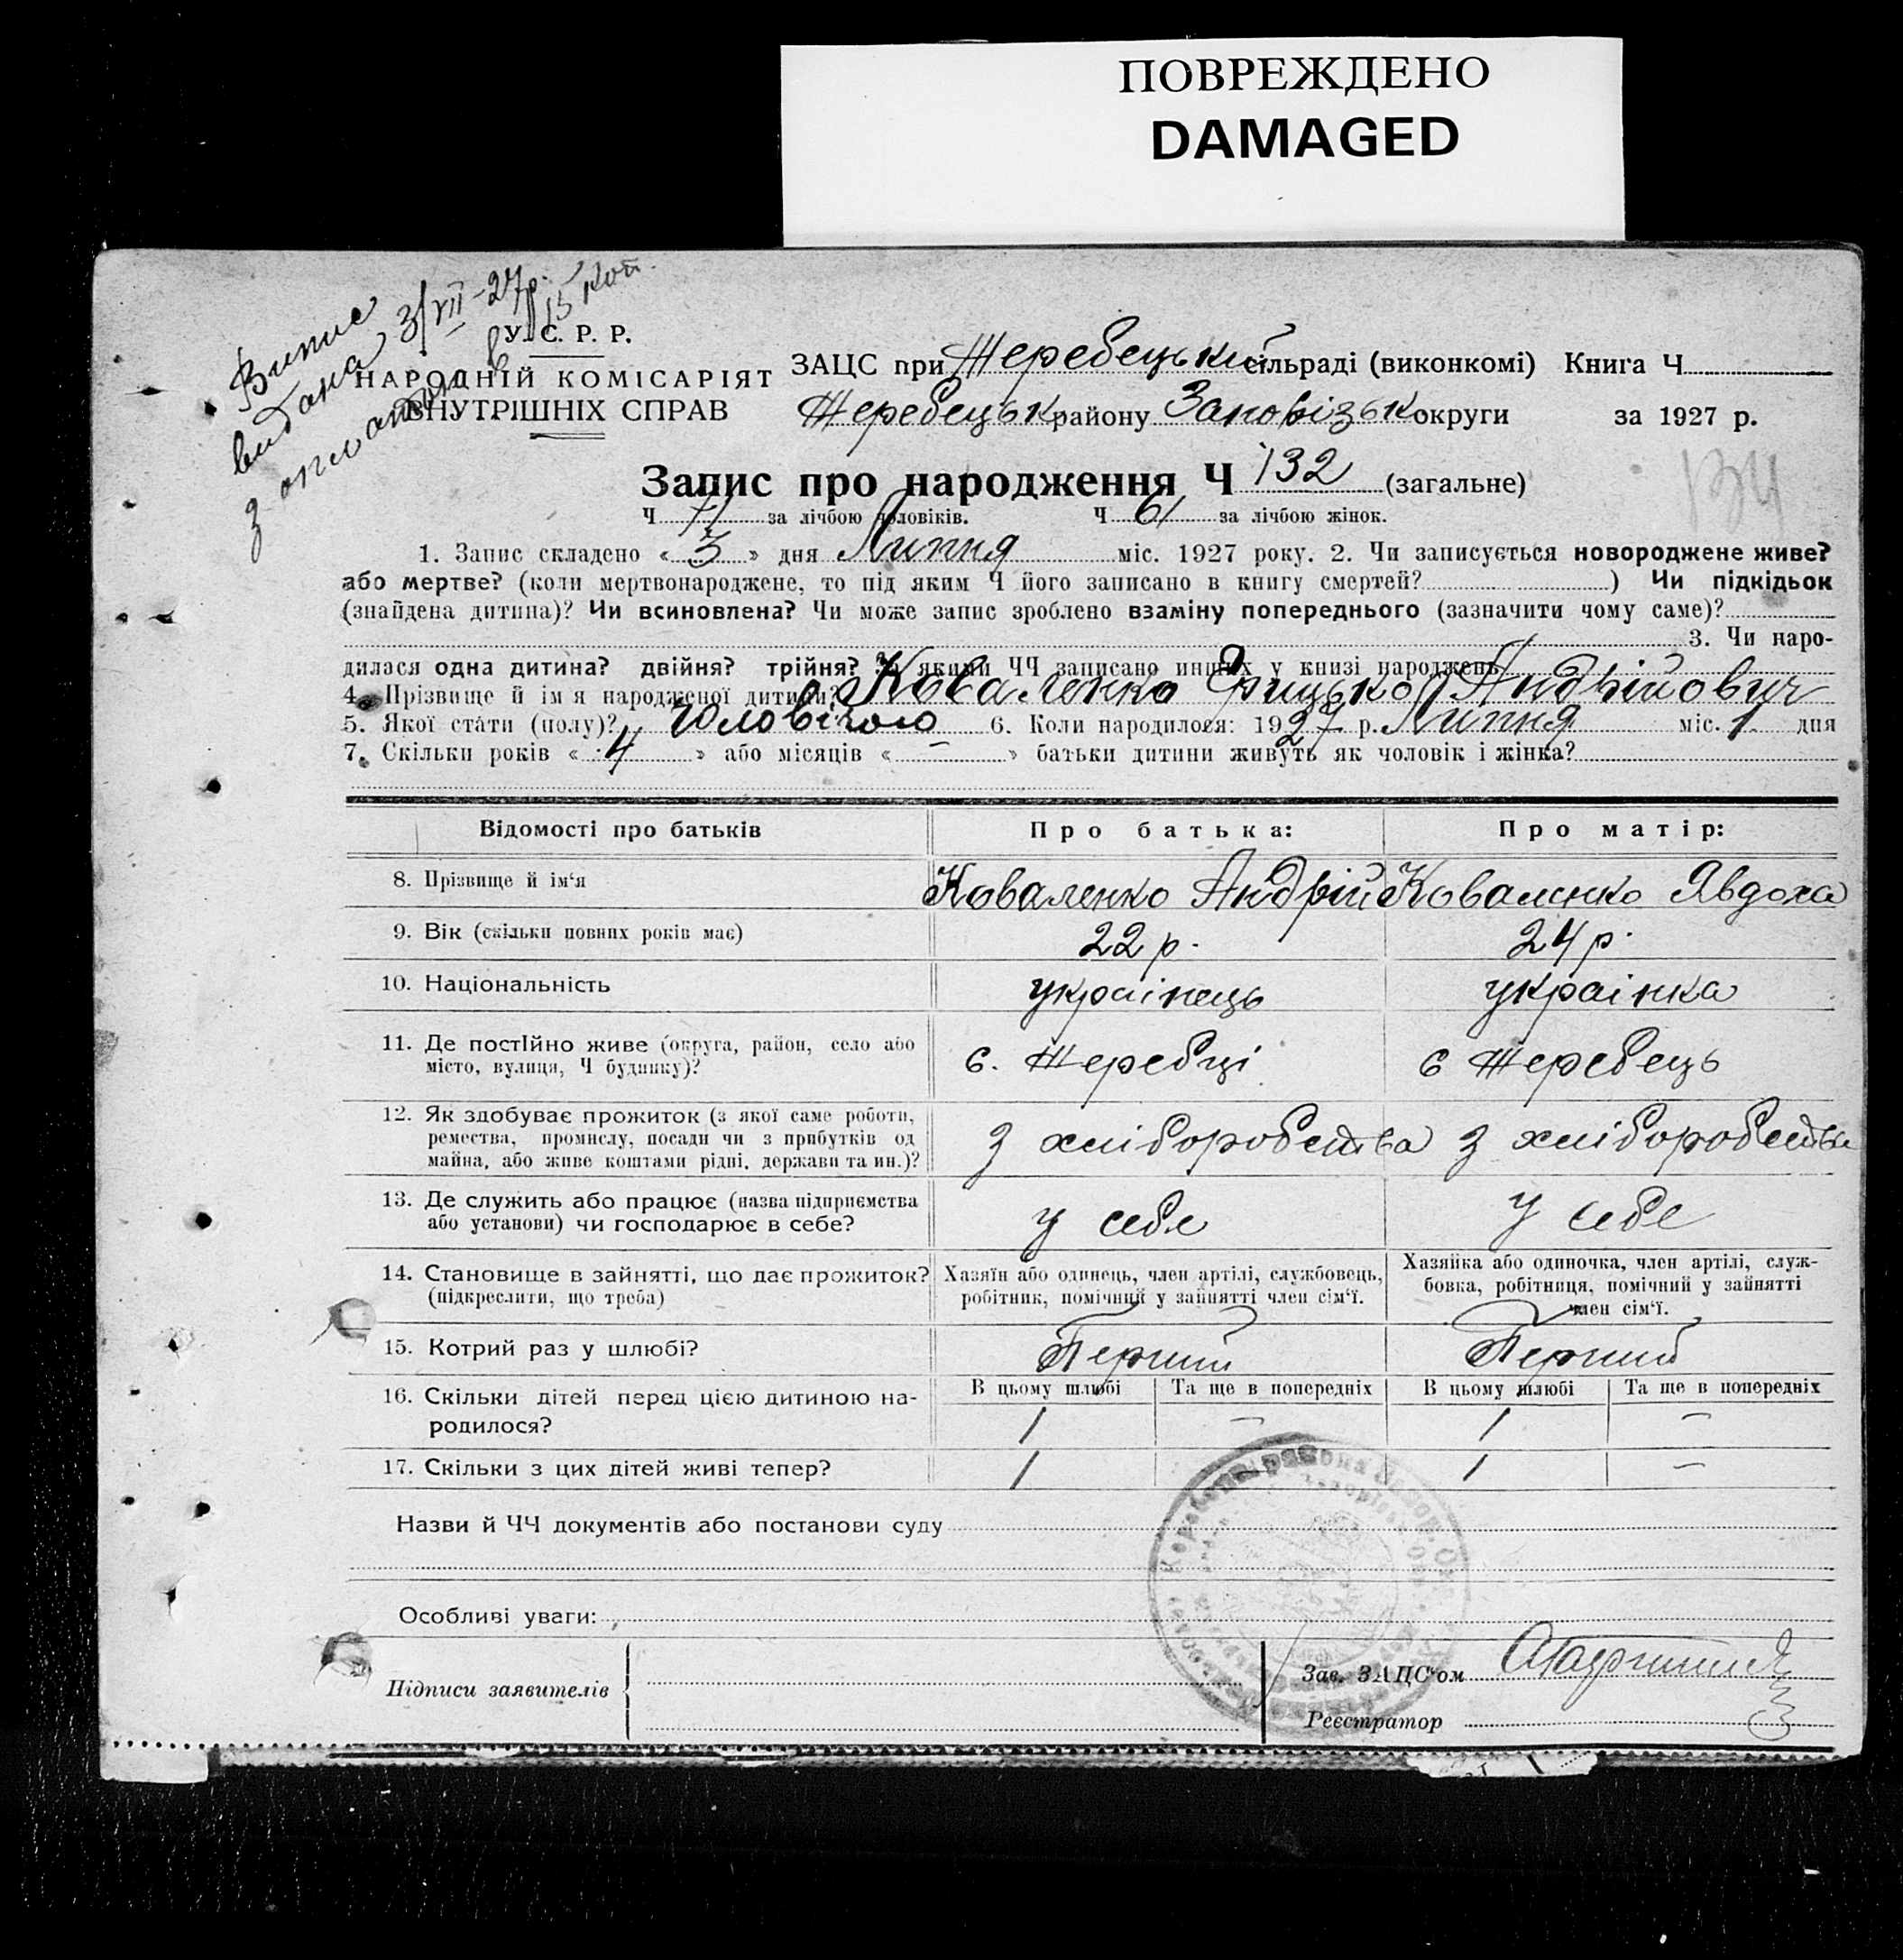 ПОВРЕЖДЕНО
DAMAGED
Випис
видана 3/VII-27р.
з оплатою в 15 коп.
У. С. Р. Р.
НАРОДНІЙ КОМІСАРІЯТ
ВНУТРІШНІХ СПРАВ
ЗАЦС при Жеребецький сільраді (виконкомі) Книга Ч
Жеребецьк району Запорізьк округи за 1927 р.
Запис про народження Ч 132 (загальне)
134
Ч 71 за лічбою чоловіків. Ч 61 за лічбою жінок.
1. Запис складено « 3 » дня Липня міс. 1927 року. 2. Чи записується новороджене живе?
або мертве? (коли мертвонароджене, то під яким Ч його записано в книгу смертей? ) Чи підкідьок
(знайдена дитина)? Чи всиновлена? Чи може запис зроблено взаміну попереднього (зазначити чому саме)?
3. Чи наро-
дилася одна дитина? двійня? трійня? За якими ЧЧ записано инших у книзі народжень
4. Прізвище й ім'я народженої дитини? Коваленко Грицько Андрійович
5. Якої стати (полу)? Чоловічою 6. Коли народилося: 1927 р. Липня міс. 1 дня
7. Скільки років « 4 » або місяців « – » батьки дитини живуть як чоловік і жінка?
Відомості про батьків Про батька: Про матір:
8. Прізвище й ім'я Коваленко Андрій Коваленко Явдоха
9. Вік (скільки повних років має) 22 р. 24 р.
10. Національність українець українка
11. Де постійно живе (округа, район, село або
місто, вулиця, Ч будинку)? с. Жеребці с Жеребець
12. Як здобуває прожиток (з якої саме роботи,
ремества, промислу, посади чи з прибутків од
майна, або живе коштами рідні, держави та ин.)? з хліборобства з хліборобства
13. Де служить або працює (назва підприємства
або установи) чи господарює в себе? у себе у себе
14. Становище в зайнятті, що дає прожиток?
(підкреслити, що треба)
Хазяїн або одинець, член артілі, службовець,
робітник, помічний у зайнятті член сім'ї.
Хазяйка або одиночка, член артілі, служ-
бовка, робітниця, помічний у зайнятті
член сім'ї.
15. Котрий раз у шлюбі? Перший Перший
В цьому шлюбі Та ще в попередніх В цьому шлюбі Та ще в попередніх
16. Скільки дітей перед цією дитиною на-
родилося? 1 – 1 –
17. Скільки з цих дітей живі тепер? 1 – 1 –
Назви й ЧЧ документів або постанови суду
Особливі уваги:
Підписи заявителів
Зав. ЗАЦС'ом
Реєстратор